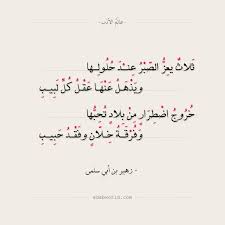 عالم الأدب
ثَلاثٌ يَعِزُّ الصَّبْرُ عِنْدَ حُلُولِها
ويَذْهَلُ عَنْهَا عَقْلُ كُلِّ لَبِيبِ
خُرُوجُ اضْطِرَارٍ مِنْ بِلادٍ تُحِبُّها
وَفُرْقَةُ خِلَّانٍ وفَقْدُ حَبِيبِ
زهير بن أبي سلمى